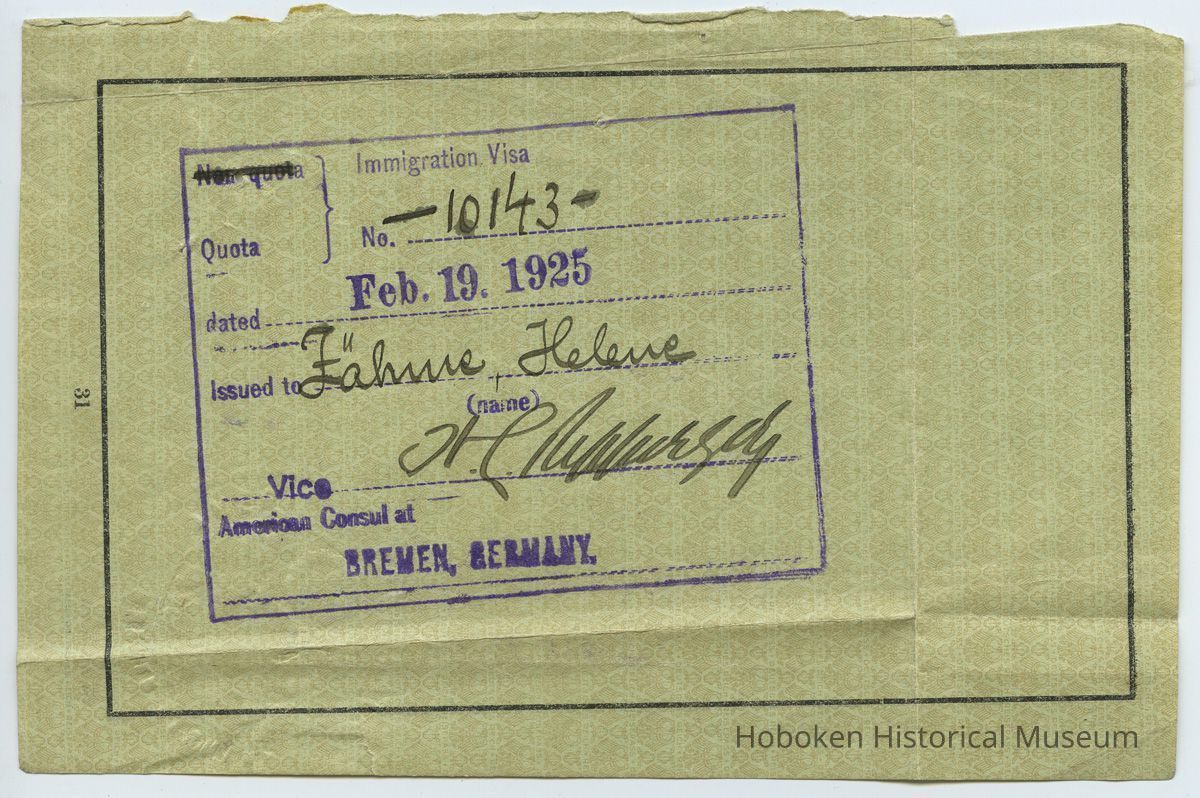 Non quota
Immigration Visa
Quota
No. —10143-
dated Feb. 19. 1925
Issued to Zähme, Helene
(name)
Vice
American Consul at
BREMEN, GERMANY.
31
Hoboken Historical Museum